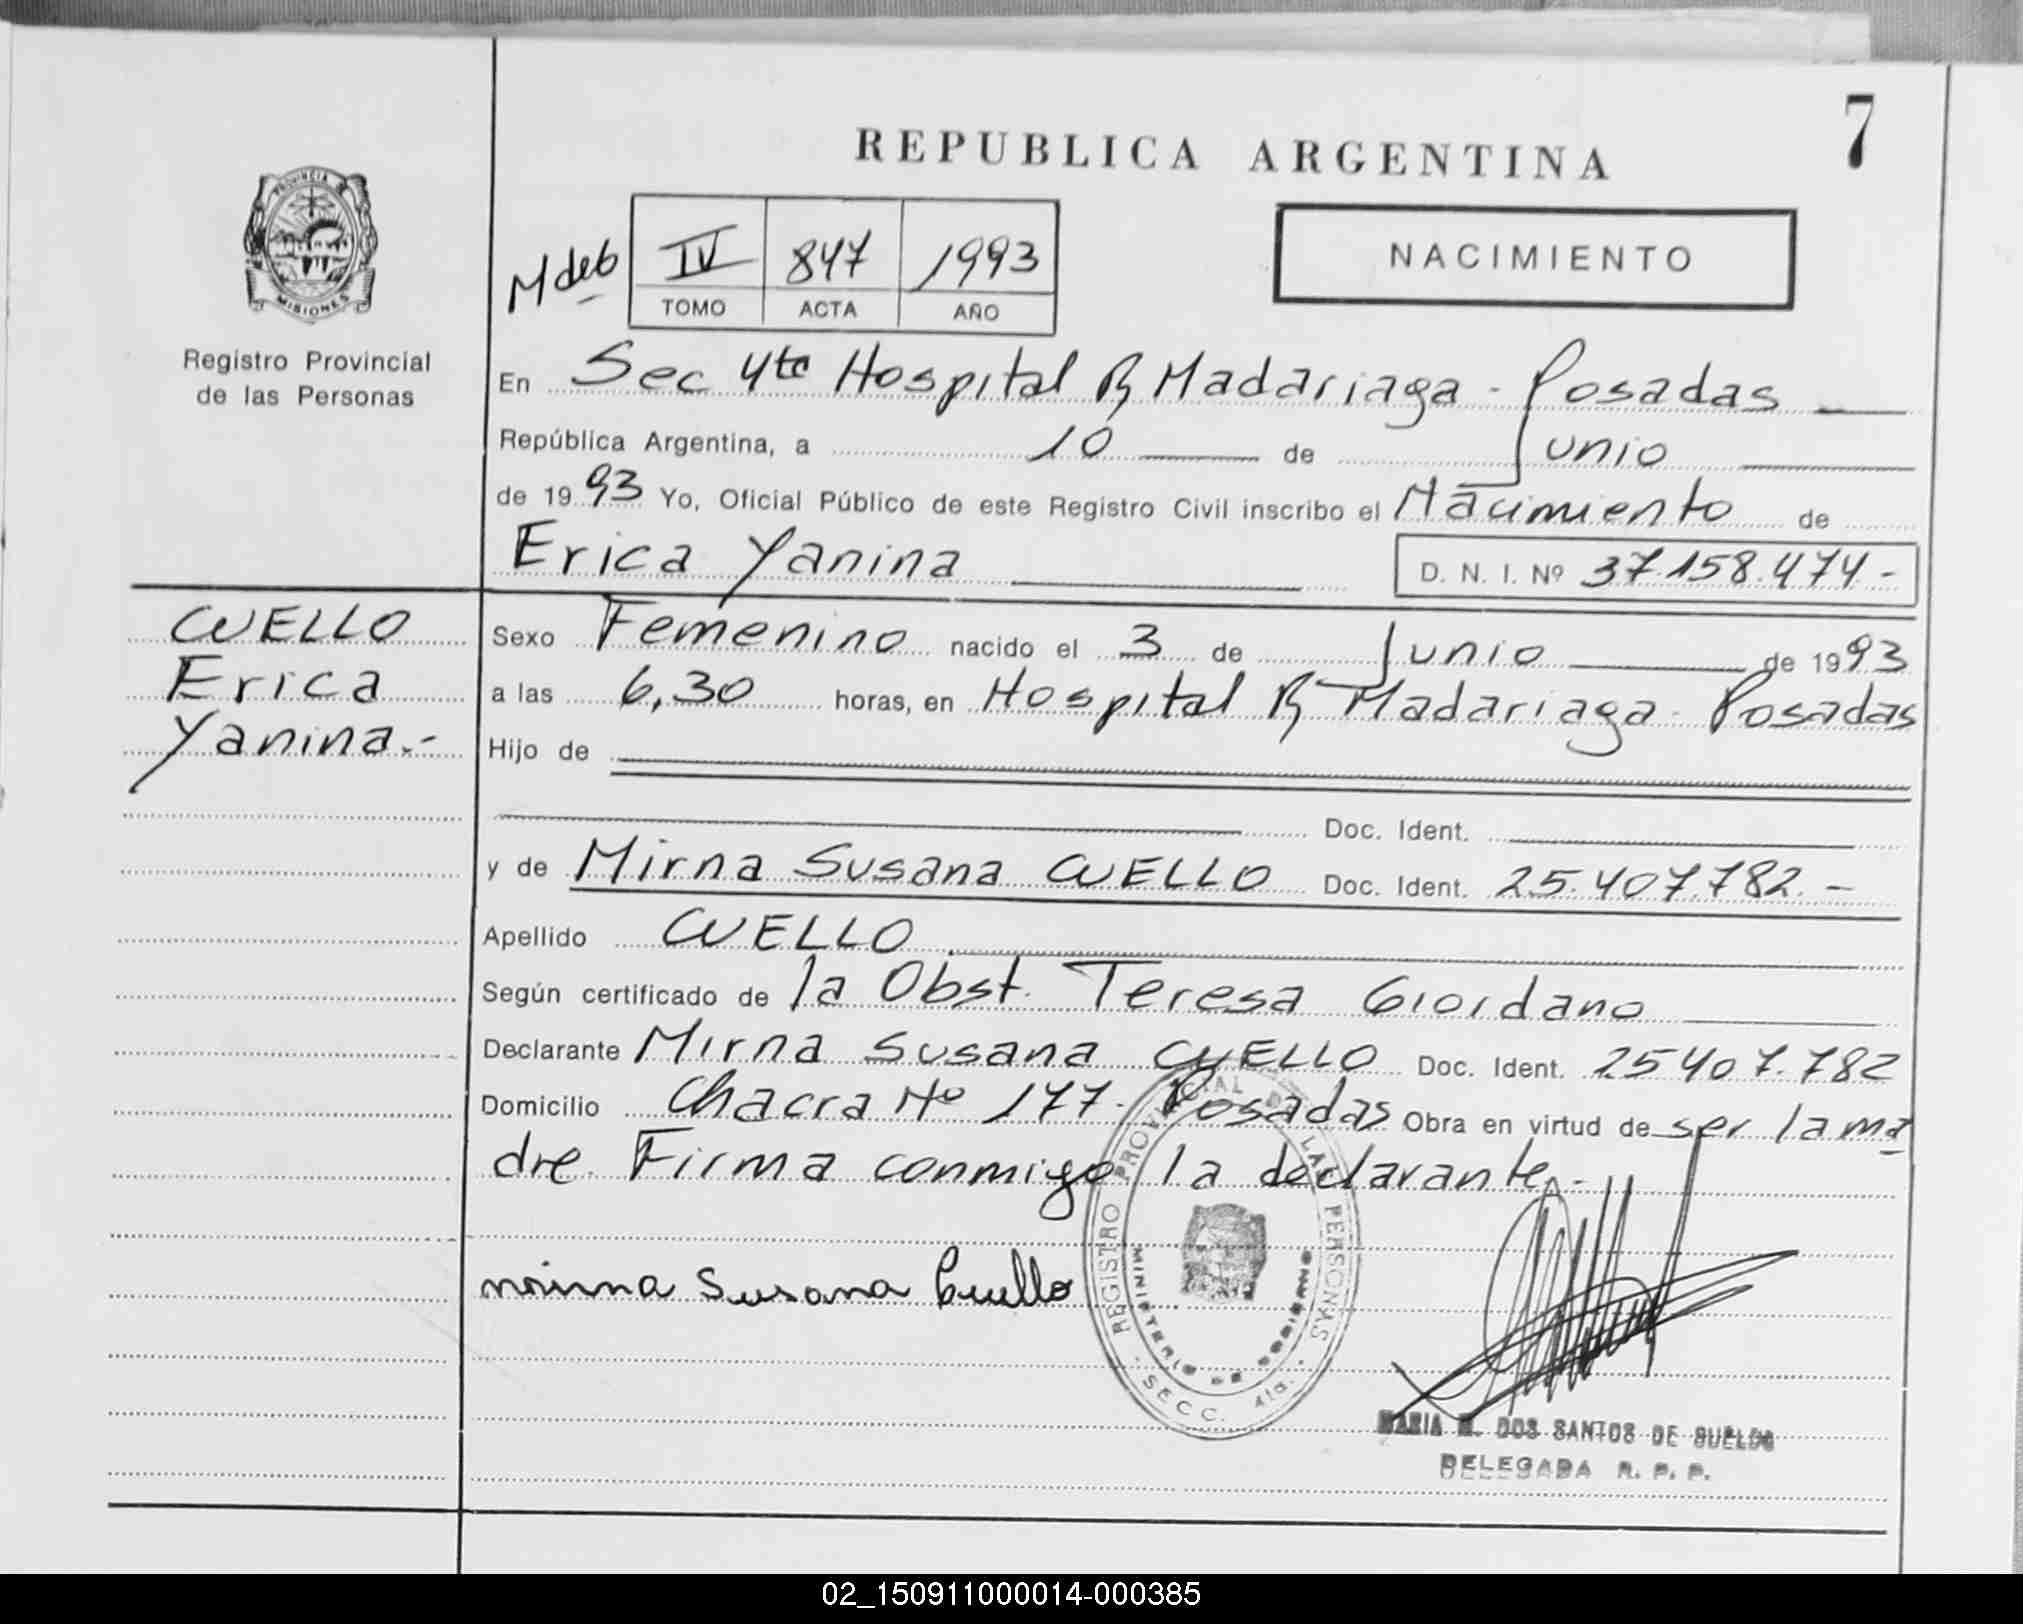 7
REPUBLICA ARGENTINA
PROVINCIA DE
MISIONES
Registro Provincial
de las Personas
NACIMIENTO
Mdeb IV 847 1993
TOMO ACTA AÑO
En Sec 4ta Hospital R Madariaga - Posadas
República Argentina, a 10 de Junio
de 1993 Yo, Oficial Público de este Registro Civil inscribo el Nacimiento de
Erica Yanina D. N. I. Nº 37.158.474-
CUELLO
Erica
Yanina.-
Sexo Femenino nacido el 3 de Junio de 1993
a las 6,30 horas, en Hospital R Madariaga - Posadas
Hijo de
Doc. Ident.
y de Mirna Susana CUELLO Doc. Ident. 25.407.782.-
Apellido CUELLO
Según certificado de la Obst. Teresa Giordano
Declarante Mirna Susana CUELLO Doc. Ident. 25407.782
Domicilio Chacra Nº 177. Posadas Obra en virtud de ser la ma
dre. Firma conmigo la declarante.-
mirna Susana Cuello
REGISTRO PROVINCIAL DE LAS PERSONAS
MINISTERIO DE GOBIERNO
SECC. 4ta.
MARIA M. DOS SANTOS DE SUELDO
DELEGADA R. P. P.
02_150911000014-000385